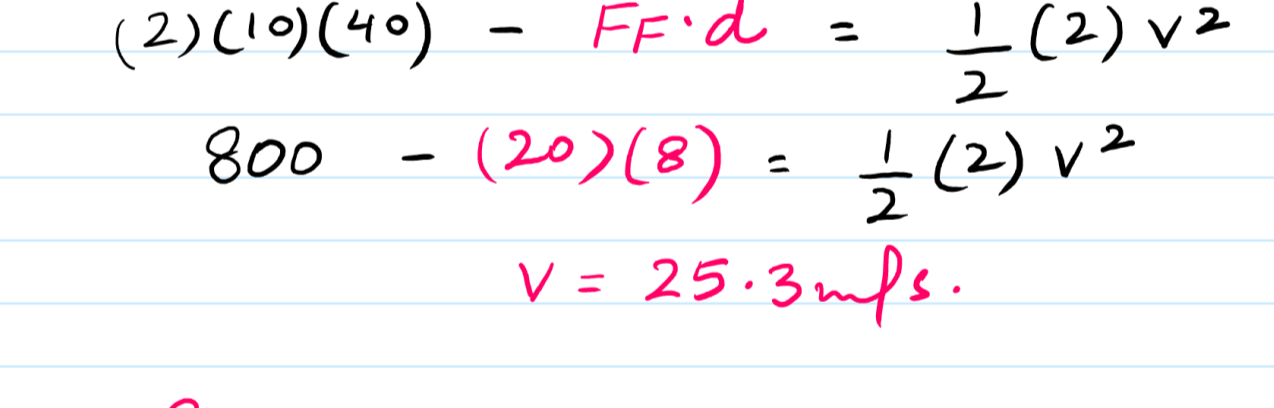 (2)(10)(40) - FF·d = 1/2 (2) v²
800 - (20)(8) = 1/2 (2) v²
v = 25.3 m/s.